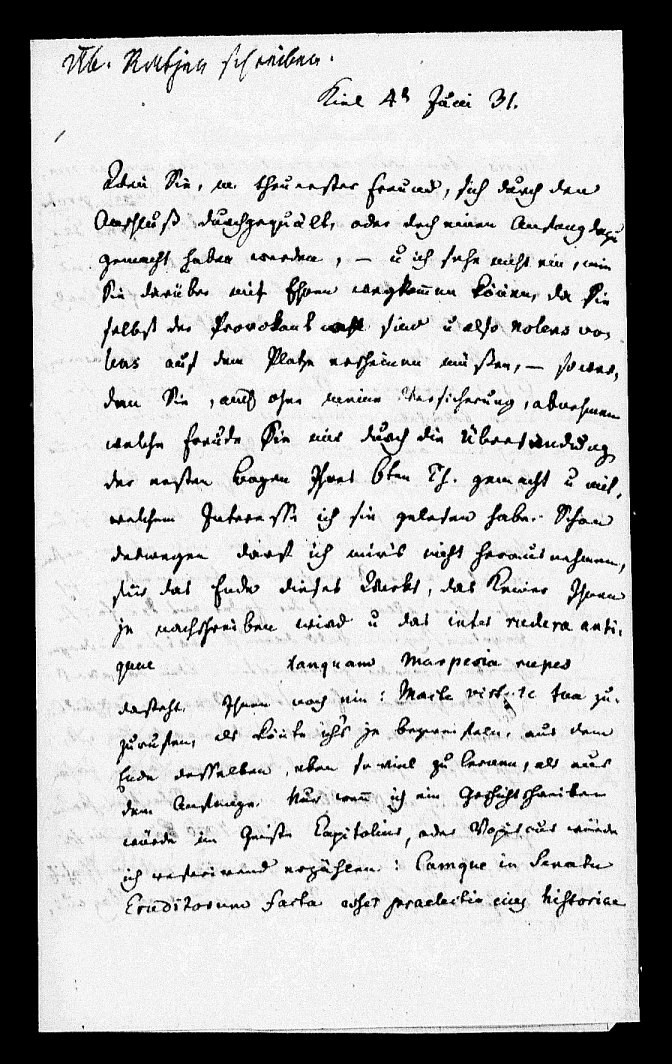 Ratjen schreiben.
Kiel 4t Juni 31.
Wenn Sie, m. theuerster Freund, sich durch den
Anschluß durchgequält, oder doch einen Anfang dazu
gemacht haben werden, – u ich sehe nicht ein, wie
Sie darüber mit Ehren wegkommen können, da Sie
selbst der Provokant sind u also nolens vo-
lens auf dem Platze erscheinen müßen, – so wer-
den Sie, auch ohne meine Versicherung, abnehmen
welche Freude Sie mir durch die Übersendung
der ersten Bogen Ihres 6ten Th. gemacht u mit
welchem Interesse ich sie gelesen habe. Schon
deswegen darf ich mir's nicht herausnehmen,
für das Ende dieses Werks, das Keiner Ihnen
je nachschreiben wird u das inter rudera anti-
quae tanquam Marpesia rupes
dasteht, Ihnen noch ein: Macte virtute tua zu-
zurufen, als könte ich's je bezweifeln, aus dem
Ende desselben, eben so viel zu lernen, als aus
dem Anfange. Nur wenn ich ein Geschichtschreiber
würde im Geiste Capitolins, oder Vopiscus würde
ich referirend erzählen: Camque in Senatu
Eruditorum facta esset praelectio ejus historiae